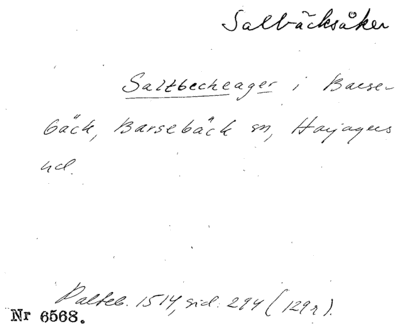 Salbäcksåker
Saltbecheager i Barse-
bäck, Barsebäck sn, Harjagers
hd.
Palteb. 1514, sid. 294 (129r).
Nr 6568.